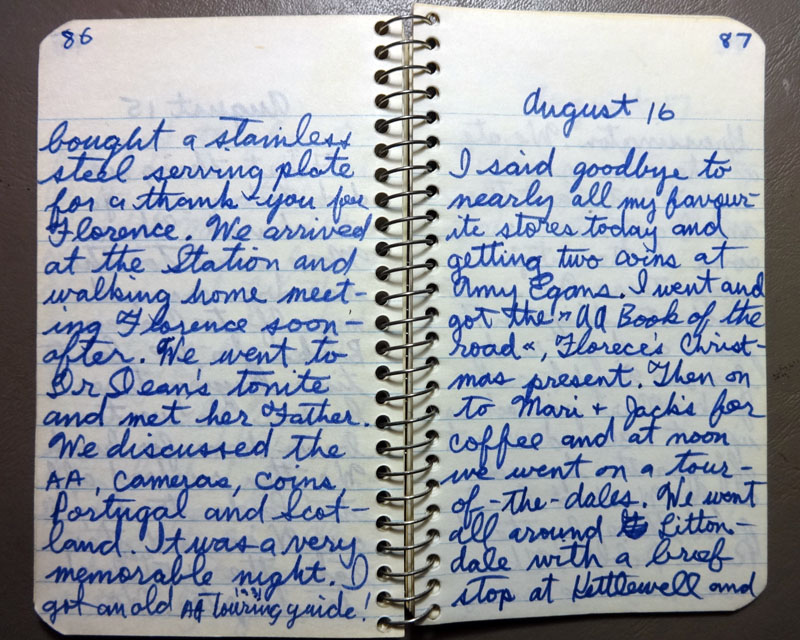 86
bought a stainless
steel serving plate
for a thank-you for
Florence. We arrived
at the Station and
walking home meet-
ing Florence soon-
after. We went to
Dr Dean's tonite
and met her Father.
We discussed the
AA, cameras, coins,
Portugal and Scot-
land. It was a very
memorable night. I
got an old AA Touring guide!
87
August 16
I said goodbye to
nearly all my favour-
ite stores today and
getting two coins at
Amy Egans. I went and
got the »AA Book of the
road«, Florece's Christ-
mas present. Then on
to Mari + Jack's for
coffee and at noon
we went on a tour-
of-the-dales. We went
all around Litton-
dale with a brief
stop at Kettlewell and